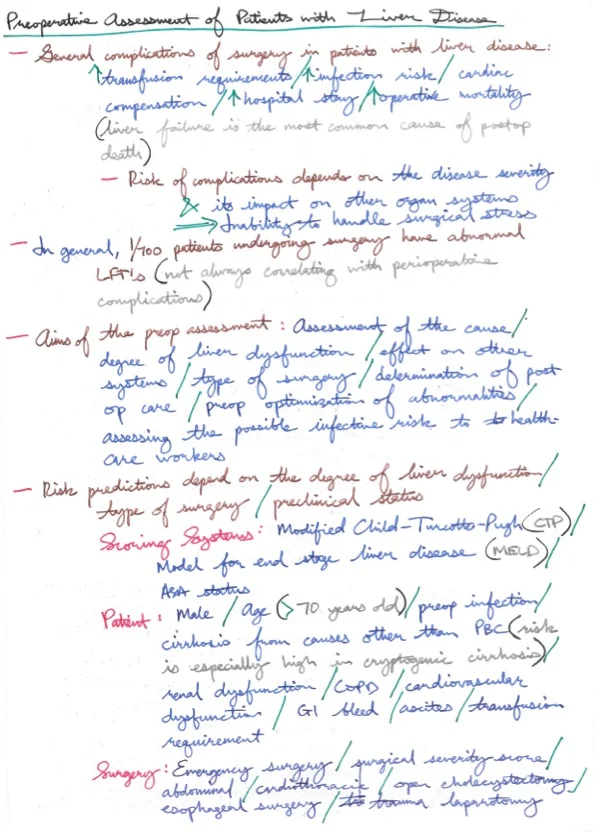 Preoperative Assessment of Patients with Liver Disease
— General complications of surgery in patients with liver disease:
↑transfusion requirements/↑infection risk/ cardiac
compensation /↑hospital stay/↑operative mortality
(liver failure is the most common cause of postop
death)
— Risk of complications depends on the disease severity
& its impact on other organ systems
⟹ Inability to handle surgical stress
— In general, 1/700 patients undergoing surgery have abnormal
LFT's (not always correlating with perioperative
complications)
— Aims of the preop assessment: Assessment of the cause/
degree of liver dysfunction /effect on other
systems / type of surgery /determination of post
op care / preop optimization of abnormalities /
assessing the possible infective risk to health-
care workers
— Risk predictions depend on the degree of liver dysfunction/
type of surgery / preclinical status
Scoring Systems: Modified Child-Turcotte-Pugh (CTP)/
Model for end stage liver disease (MELD)/
ASA status
Patient: Male / Age (>70 years old)/ preop infection/
cirrhosis from causes other than PBC (risk
is especially high in cryptogenic cirrhosis)/
renal dysfunction /COPD /cardiovascular
dysfunction / GI bleed /ascites /transfusion
requirement
Surgery: Emergency surgery/ surgical severity score/
abdominal /cardiothoracic / open cholecystectomy/
esophageal surgery / trauma laparotomy